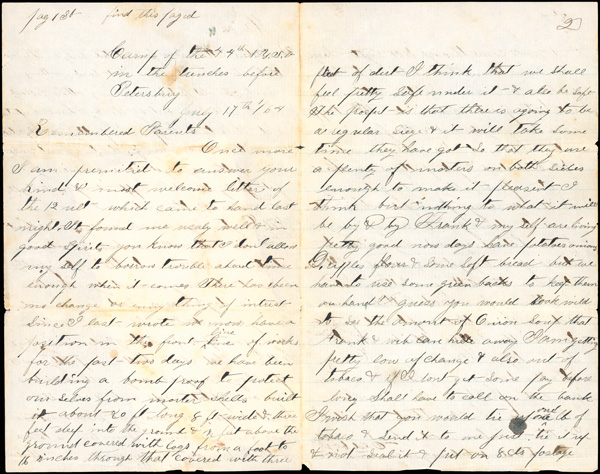 pag 1st find this paged
Camp of the 44th N.Y.S.V
in the trenches before
Petersburg
Aug 17th /64
Remembered Parents
Once more
I am permitted to answer your
kind & most welcome letter of
the 12 ult which came to hand last
night. It found me usaly well & in
good spirits you know that I dont allow
my self to borrow trouble about
enough when it comes There has been
no change or any thing of intrest
since I last wrote we now have a
position in the front line of works
for the past two days we have been
building a bomb proof to protect
our selves from morter shells built
it about 20 ft long 8 ft wide & three
feet deep into the ground & ft above the
ground covered with logs from a foot to
16 inches through that covered with three
2
feet of dirt I think that we shall
feel pretty safe under it & also be safe
the prospet is that there is agoing to be
a regular siege & it will take some
time they have got so that they are
a plenty of morters on both sides
enough to make it pleasent I
think but nothing to what it will
be by & by Frank & my self are living
pretty good now days have potatoes onions
apples flour & some soft bread but we
have to use some green backs to keep them
on hand I guess you would look wild
to see the amont of Onion soup that
Frank & me can hide away I am getting
pretty low of change & also out of
tobaco & if I dont get some pay before
long shall have to call on the bank
I wish that you would tie up one lb of
tobaco & send it to me just tie it up
& not seal it & put on 8 cts postage